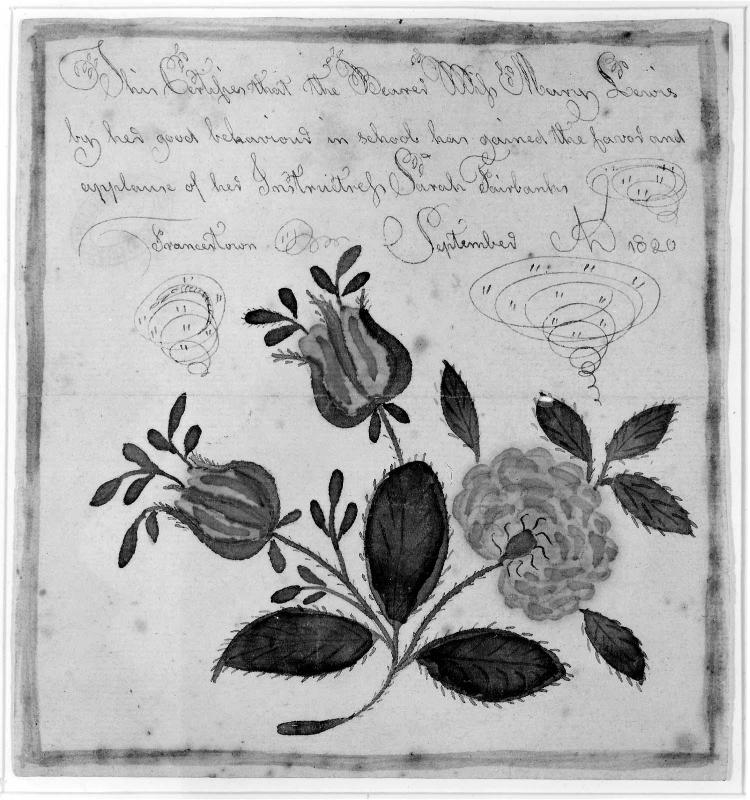 This Certifies that the Bearer Miss Mary Lewis
by her good behaviour in school has gained the favor and
applause of her Instructress Sarah Fairbanks
Francestown September AD 1820